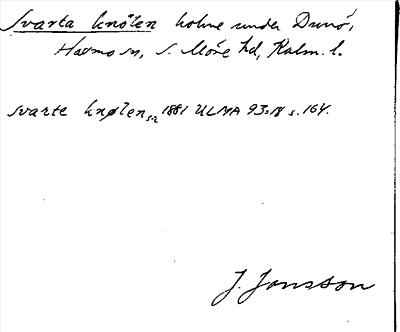 Svarta knölen kolne under Dunö,
Halmo sn, S. Möre hd, Kalm. l.
svarte knølen s.2 1881 ULMA 93:18 s. 164.
J. Jonsson